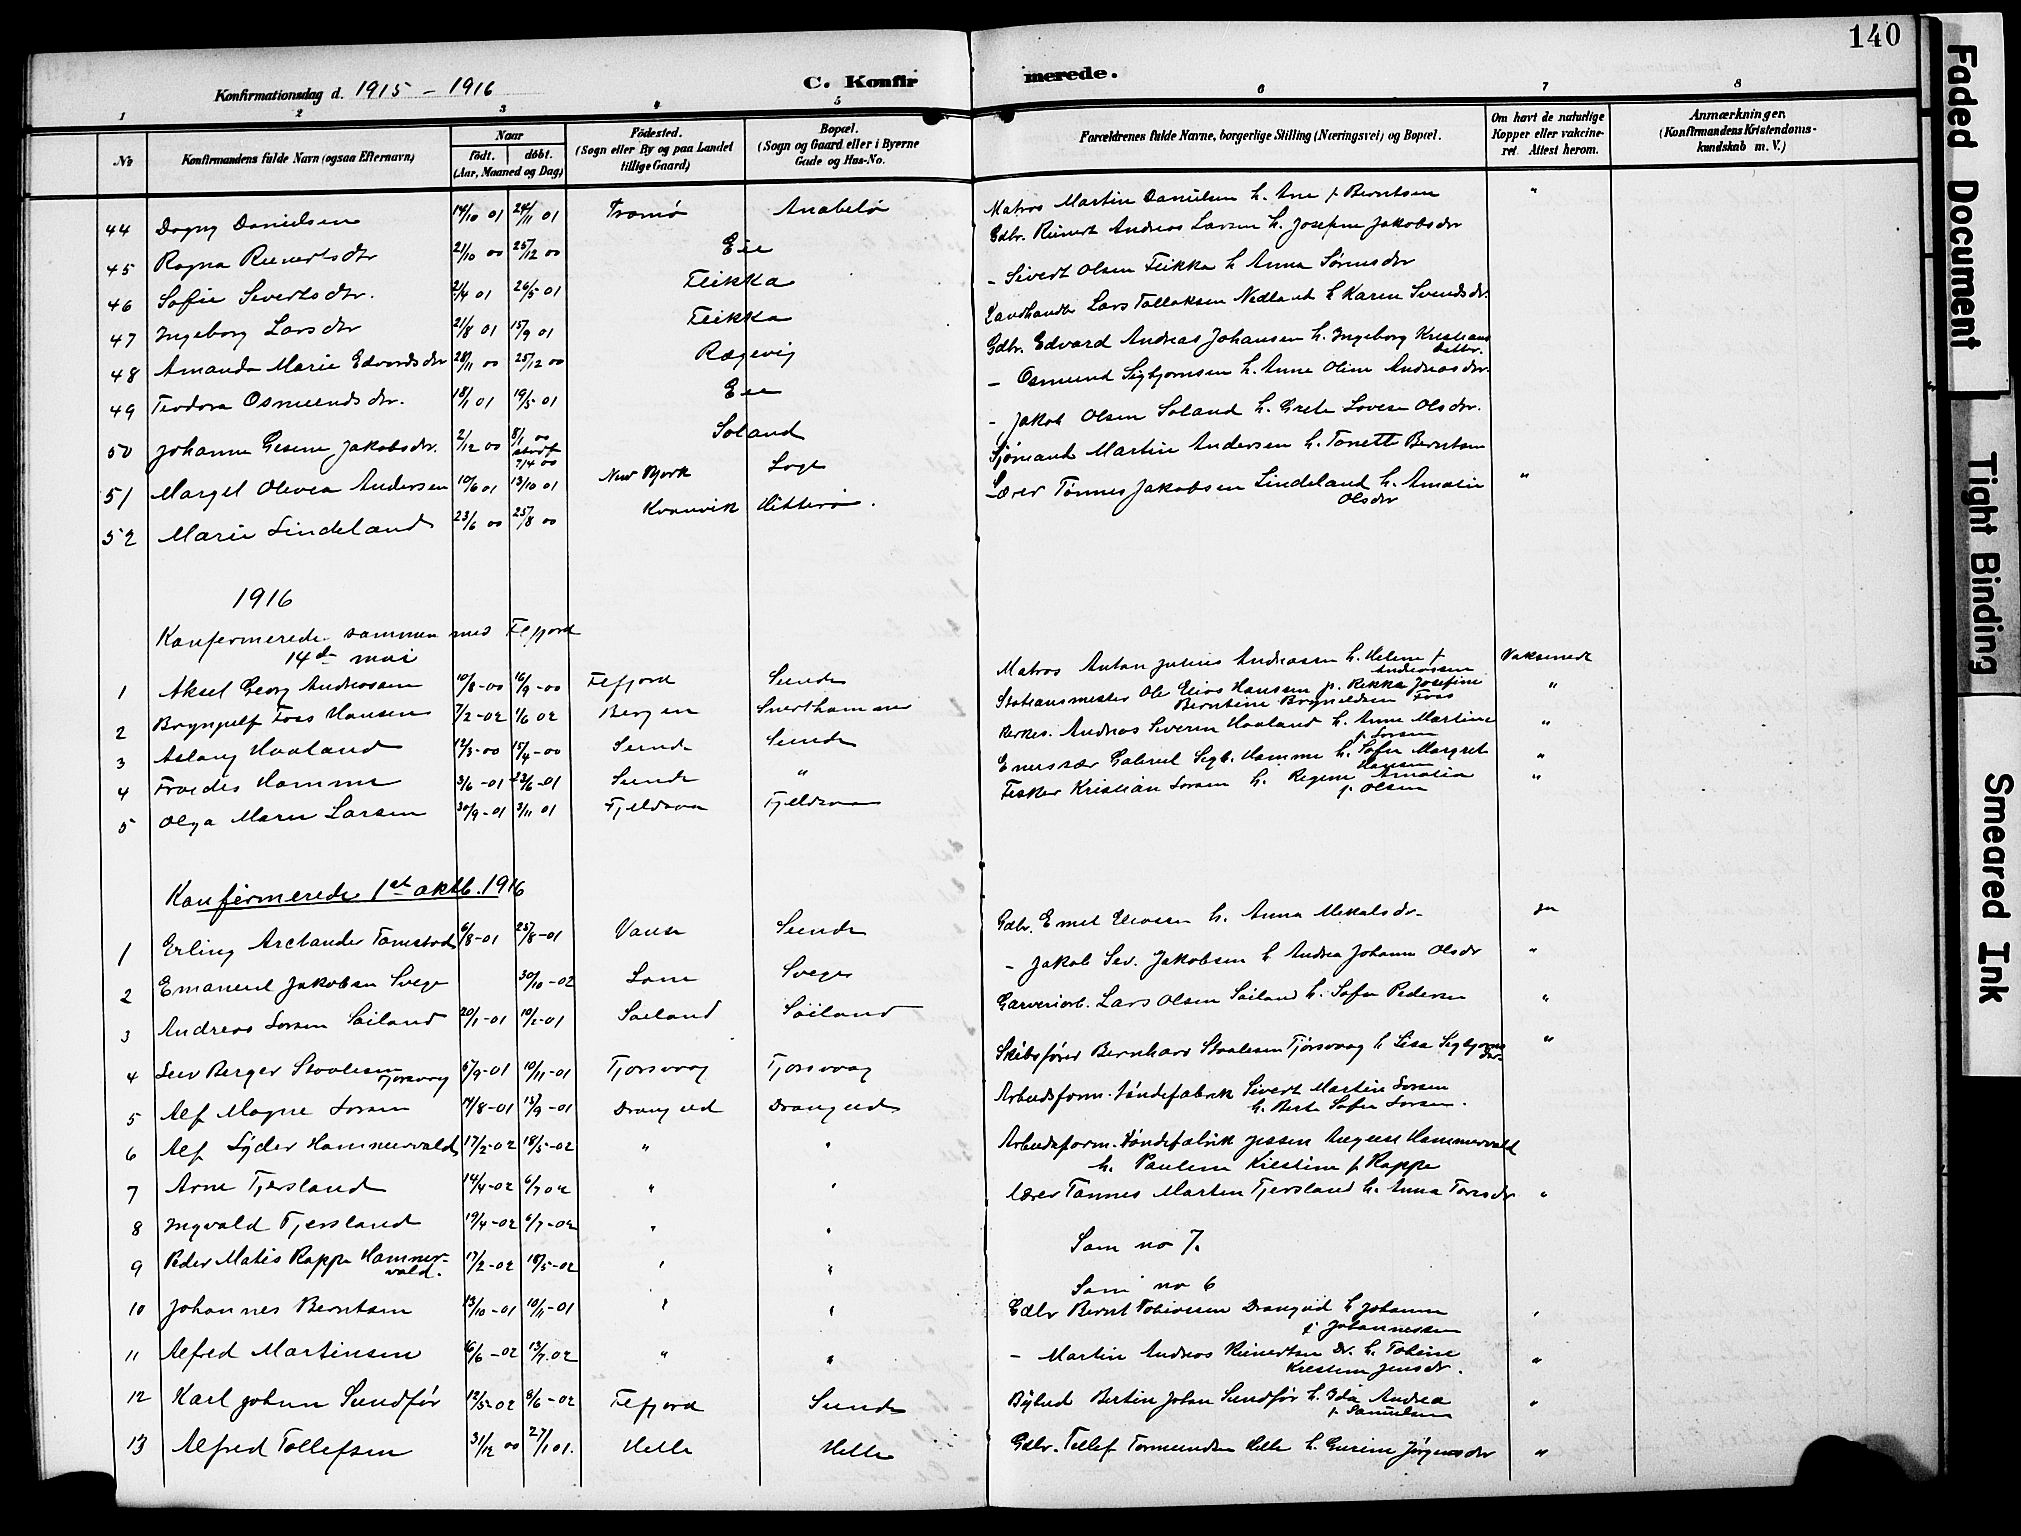 140
Konfirmationsdag d. 1915 - 1916
C. Konfirmerede.
1 2 3 4 5 6 7 8
No
Konfirmandens fulde Navn (ogsaa Efternavn)
Naar
födt. döbt.
(Aar, Maaned og Dag)
Födested.
(Sogn eller By og paa Landet
tillige Gaard)
Bopæl.
(Sogn og Gaard eller i Byerne
Gade og Hus-No.
Forældrenes fulde Navne, borgerlige Stilling (Næringsvei) og Bopæl.
Om havt de naturlige
Kopper eller vakcine-
ret. Attest herom.
Anmærkninger.
(Konfirmandens Kristendoms-
kundskab m. V.)
44 Dagny Danielsen 14/10 01 24/11 01 Tromø Anabelø Matros Martin Danielsen h. Ane f. Berntsen "
45 Ragna Reinertsdtr 21/10 00 25/12 00 Eie Gdbr. Reinert Andreas Larsen h. Josefine Jakobsdtr
46 Sofie Sivertsdtr. 21/4 01 26/5 01 Fleikka - Sivert Olsen Fleikka h. Anna Sørensdtr
47 Ingeborg Larsdtr 21/8 01 15/9 01 Fleikka Landhandler Lars Tallaksen Nedland h. Karen Svendsdr.
48 Amanda Marie Edvardsdtr 28/11 00 25/12 00 Rægevig Gdbr. Edvard Andreas Johansen h. Ingeborg Kristians
datter.
49 Teodora Osmundsdtr. 18/1 01 19/5 01 Eie - Osmund Sigbjørnsen h. Anne Oline Andreasdtr.
50 Johanne Gesine Jakobsdtr. 2/12 00 8/1 00 Soland - Jakob Olsen Soland h. Grete Lovise Olsdtr.
7/4 00
51 Margit Olivia Andersen 10/6 01 13/10 01 New York Loge Sjømand Martin Andersen h. Tonette Berntsen
52 Marie Lindeland 23/6 00 25/8 00 Kvanvik Hitterø. Lærer Tønnes Jakobsen Lindeland h. Amalie "
Olsdtr
1916
Konfermerede sammen med Flefjord
14de mai
1 Aksel Georg Andreassen 10/8-00 16/9-00 Flefjord Sunde Matros Anton Julius Andreassen h. Helene f. Vaksinert
Andreassen
2 Brynjulf Foss Hansen 7/2-02 1/6 02 Bergen Stationsmester Ole Elias Hansen h. Rikka Josefine "
Berntine Brynildsen Foss
3 Aslaug Haaland 12/3-00 15/4-00 Sunde Sunde Andreas Severin Haaland h. Anne Martine "
f. Larsen
4 Hamme 3/6-01 23/6-01 Sunde " Gabriel Sigb. Hamme h. Sofie Margret "
Hansen
5 Olga Marie Larsen 30/9-01 3/11 01 Fjeldsaa Fjeldsaa Fisker Kristian Larsen h. Regine Amalia "
f. Olsen
Konfirmerede 1st oktb. 1916
1 Erling Arctander Tamstad 6/8-01 25/8-01 Vanse Sunde Gdbr. Emil Eliassen h. Anna Mikalsdr. Ja
2 Emanuel Jakobsen Svege 30/10-02 Lone Svege - Jakob Sev. Jakobsen h. Andrea Johanne Olsdr "
3 Andreas Larsen Søiland 20/1-01 10/2-01 Søiland Søiland Garveriarb. Lars Olsen Søiland h. Sofie Pedersen "
4 Leiv Berger Staalesen 5/9-01 10/11-01 Tjorsvaag Tjorsvaag Skibsfører Bernhard Staalesen Tjørsvaag h. Lisa Sigbjørns "
Tjorsvaag
dtr-
5 Alf Magne Larsen 14/8-01 15/9-01 Drangeid Drangeid Arbeidsform. Tøndefabrik Sivert Martin Larsen
h. Berte Sofie Larsen.
6 Alf Lyder Hammervald 17/2-02 18/5-02 " " Arbeidsform. Tøndefabrik Jessen August Hammervald
h. Pauline Kristine f. Rappe
7 Arne Tjersland 14/4-02 6/7 02 " " Lærer Tønnes Martin Tjersland h. Anna Toresdr "
8 Ingvald Tjersland 19/4-02 6/7-02 " " Som no 7.
9 Peder Matis Rappe Hammer- 17/2-02 18/5-02 " " Som no 6
vald.
10 Johannes Berntsen 13/10-01 10/11-01 " " Gdbr Bernt Tobiassen Drangeid h. Johanne "
f. Johannessen
11 Alfred Martinsen 16/6-02 13/7-02 " " - Martin Andreas Reinertsen Dr. h. Tobine "
Kristine Jensdr.
12 Karl Johan Sundfør 12/5-02 8/6-02 Flefjord Sunde Bybud Bertin Johan Sundfør h. Ida Andrea "
f. Samuelsen
13 Alfred Tollefsen 31/12 00 27/1 01. Helle Helle Gdbr. Tollef Tormundsen Helle h. Gurine Jørgensdr "
Faded Document
Tight Binding
Smeared Ink